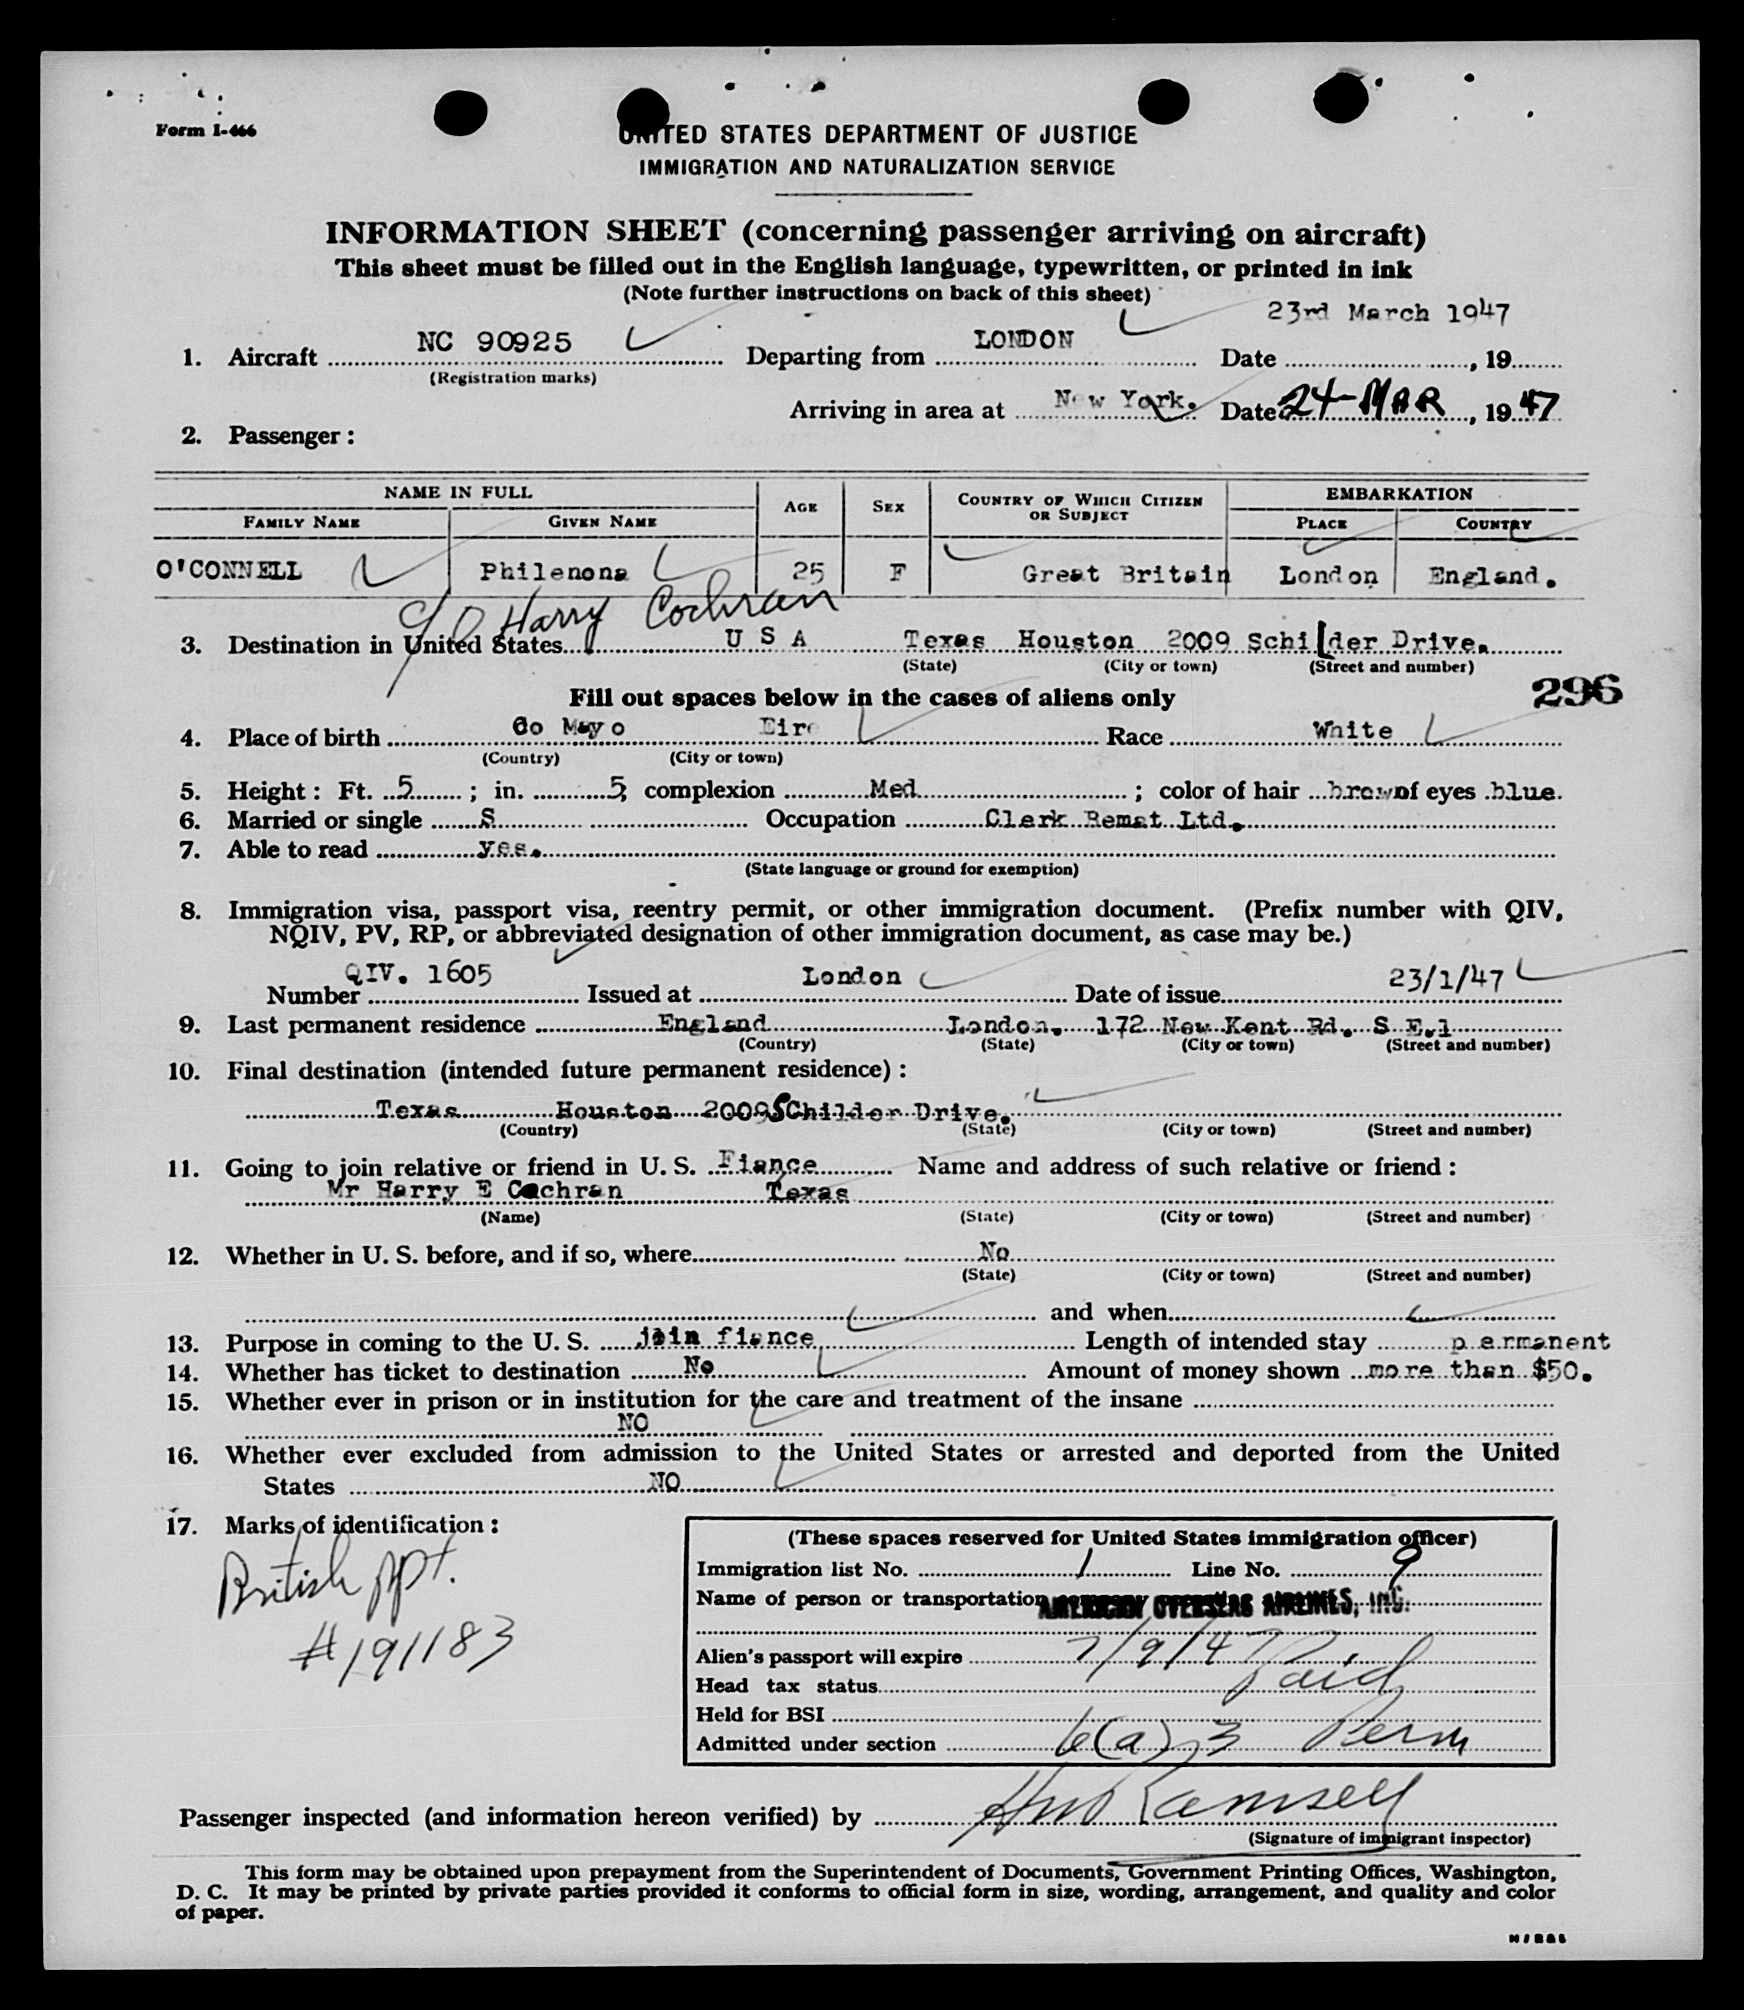 Form I-466
UNITED STATES DEPARTMENT OF JUSTICE
IMMIGRATION AND NATURALIZATION SERVICE
INFORMATION SHEET (concerning passenger arriving on aircraft)
This sheet must be filled out in the English language, typewritten, or printed in ink
(Note further instructions on back of this sheet)
23rd March 1947
1. Aircraft NC 90925 Departing from LONDON Date , 19
(Registration marks)
Arriving in area at New York. Date 24-MAR, 1947
2. Passenger:
NAME IN FULL AGE SEX COUNTRY OF WHICH CITIZEN OR SUBJECT EMBARKATION
FAMILY NAME GIVEN NAME PLACE COUNTRY
O'CONNELL Philenona 25 F Great Britain London England.
C/O Harry Cochran
3. Destination in United States U S A Texas Houston 2009 Schilder Drive.
(State) (City or town) (Street and number)
Fill out spaces below in the cases of aliens only 296
4. Place of birth Co Mayo Eire Race White
(Country) (City or town)
5. Height: Ft. 5; in. 5; complexion Med; color of hair brown of eyes blue.
6. Married or single S Occupation Clerk Remat Ltd.
7. Able to read yes.
(State language or ground for exemption)
8. Immigration visa, passport visa, reentry permit, or other immigration document. (Prefix number with QIV,
NQIV, PV, RP, or abbreviated designation of other immigration document, as case may be.)
Number QIV. 1605 Issued at London Date of issue 23/1/47
9. Last permanent residence England London. 172 New Kent Rd. S E.1
(Country) (State) (City or town) (Street and number)
10. Final destination (intended future permanent residence):
Texas Houston 2009 SChilder Drive.
(Country) (State) (City or town) (Street and number)
11. Going to join relative or friend in U. S. Fiance Name and address of such relative or friend:
Mr Harry E Cochran Texas
(Name) (State) (City or town) (Street and number)
12. Whether in U. S. before, and if so, where No
(State) (City or town) (Street and number)
and when
13. Purpose in coming to the U. S. join fiance Length of intended stay permanent
14. Whether has ticket to destination No Amount of money shown more than $50.
15. Whether ever in prison or in institution for the care and treatment of the insane
NO
16. Whether ever excluded from admission to the United States or arrested and deported from the United
States NO
17. Marks of identification:
British ppt.
#191183
(These spaces reserved for United States immigration officer)
Immigration list No. 1 Line No. 9
Name of person or transportation AMERICAN OVERSEAS AIRLINES, INC.
Alien's passport will expire 7/9/47
Head tax status Paid
Held for BSI
Admitted under section 6(a) 3 Perm
Passenger inspected (and information hereon verified) by
(Signature of immigrant inspector)
This form may be obtained upon prepayment from the Superintendent of Documents, Government Printing Offices, Washington,
D. C. It may be printed by private parties provided it conforms to official form in size, wording, arrangement, and quality and color
of paper.